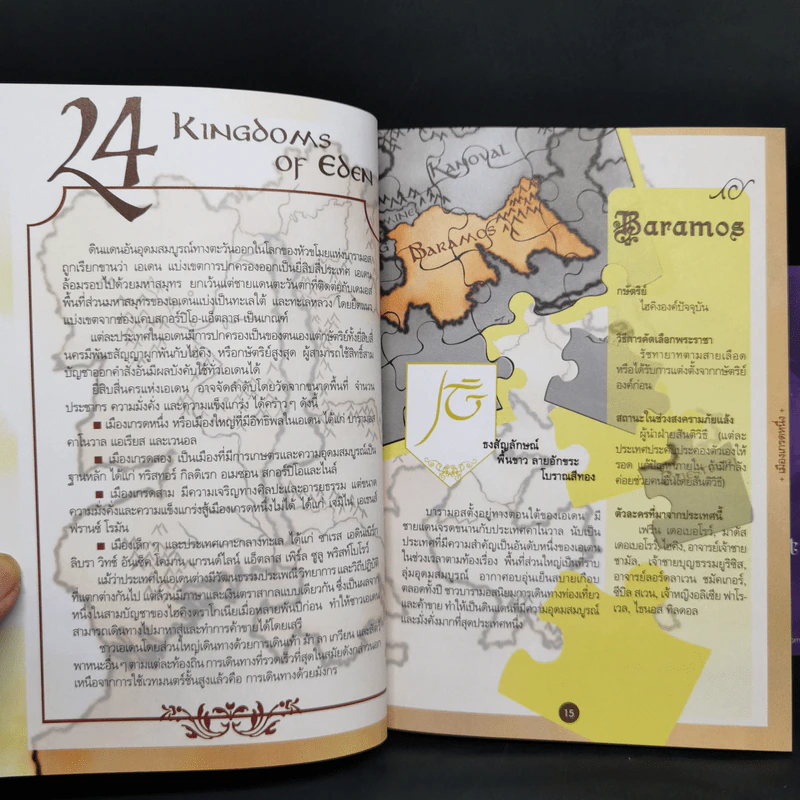 24 KINGDOMS
OF EDEN
ดินแดนอันอุดมสมบูรณ์ทางตะวันออกในโลกของหัวขโมยแห่งบารามอส
ถูกเรียกขานว่า เอเดน แบ่งเขตการปกครองออกเป็นยี่สิบสี่ประเทศ เอเดน
ล้อมรอบไปด้วยมหาสมุทร ยกเว้นแต่ชายแดนตะวันตกที่ติดต่อกับเดมอส
พื้นที่ส่วนมหาสมุทรของเอเดนแบ่งเป็นทะเลใต้ และทะเลหลวง โดยยึดแนว
แบ่งเขตจากช่องแคบสกอร์ปิโอ-แอ็ตลาส-เป็นเกณฑ์
แต่ละประเทศในเอเดนมีการปกครองเป็นของตนเองแต่กษัตริย์ทั้งยี่สิบสี่
นครมีพันธสัญญาผูกพันกับไฮคิง หรือกษัตริย์สูงสุด ผู้สามารถใช้สิทธิ์สาม
บัญชาออกคำสั่งอันมีผลบังคับใช้ทั่วเอเดนได้
ยี่สิบสี่นครแห่งเอเดน อาจจัดลำดับโดยวัดจากขนาดพื้นที่ จำนวน
ประชากร ความมั่งคั่ง และความแข็งแกร่ง ได้คร่าวๆ ดังนี้
■ เมืองเกรดหนึ่ง หรือเมืองใหญ่ที่มีอิทธิพลในเอเดน ได้แก่ บารามอส
คาโนวาล แอเรียส และเวนอล
■ เมืองเกรดสอง เป็นเมืองที่มีการเกษตรและความอุดมสมบูรณ์เป็น
ฐานหลัก ได้แก่ ทริสทอร์ กิลดิเรก อเมซอน สกอร์ปิโอและไนล์
■ เมืองเกรดสาม มีความเจริญทางศิลปะและอารยธรรม แต่ขนาด
ความมั่งคั่งและความแข็งแกร่งสู้เมืองเกรดหนึ่งไม่ได้ ได้แก่ เจมิไน เอเธนส์
ฟรานซ์ โรมัน
■ เมืองเล็กๆ และประเทศเกาะกลางทะเล ได้แก่ ซาเรส เอดินเบิร์ก
ลิบรา วิทช์ อันเซ็ค โคมาน แกรนด์ไลน์ แอ็ตลาส เพิร์ล ซูลู พริสทโบโรว์
แม้ว่าประเทศในเอเดนต่างมีวัฒนธรรมประเพณีวิทยาการ และวิถีปฏิบัติ
ที่แตกต่างกันไป แต่ล้วนมีภาษาและเงินตราสากลแบบเดียวกัน ซึ่งเป็นผลจาก
หนึ่งในสามบัญชาของไฮคิงดราโกเนียเมื่อหลายพันปีก่อน ทำให้ชาวเอเดน
สามารถเดินทางไปมาหาสู่และทำการค้าขายได้โดยเสรี
ชาวเอเดนโดยส่วนใหญ่เดินทางด้วยการเดินเท้า ม้า ลา เกวียน และ
พาหนะอื่นๆ ตามแต่ละท้องถิ่น การเดินทางที่รวดเร็วที่สุดในสมัยดังกล่าวนอก
เหนือจากการใช้เวทมนตร์ชั้นสูงแล้วคือ การเดินทางด้วยมังกร
KANOVAL
BARAMOS
ธงสัญลักษณ์
พื้นขาว ลายอักขระ
โบราณสีทอง
บารามอสตั้งอยู่ทางตอนใต้ของเอเดน มี
ชายแดนจรดขนานกับประเทศคาโนวาล นับเป็น
ประเทศที่มีความสำคัญเป็นอันดับหนึ่งของเอเดน
ในช่วงเวลาตามท้องเรื่อง พื้นที่ส่วนใหญ่เป็นที่ราบ
ลุ่มอุดมสมบูรณ์ อากาศอบอุ่นเย็นสบายเกือบ
ตลอดทั้งปี ชาวบารามอสนิยมการเดินทางท่องเที่ยว
และค้าขาย ทำให้เป็นดินแดนที่มีความอุดมสมบูรณ์
และมั่งคั่งมากที่สุดประเทศหนึ่ง
Baramos
กษัตริย์
ไฮคิงองค์ปัจจุบัน
วิธีการคัดเลือกพระราชา
รัชทายาทตามสายเลือด
หรือได้รับการแต่งตั้งจากกษัตริย์
องค์ก่อน
สถานะในช่วงสงครามภัยแล้ง
ผู้นำฝ่ายสันติวิธี (แต่ละ
ประเทศประคับประคองตัวเองให้
รอด แก้ปัญหาภายใน ถ้ามีกำลัง
ค่อยช่วยคนอื่นโดยสันติวิธี)
ตัวละครที่มาจากประเทศนี้
เฟริน เดอเบอโรว์, มาดัส
เดอเบอโรว์, ไฮคิง, อาจารย์เจ้าชาย
ซามัล, เจ้าชายบุญธรรมยูริซิส,
อาจารย์ลอร์ดลาเวน ชมัคเกอร์,
ซีบิล สเวน, เจ้าหญิงอลิเซีย ฟาโร-
เวล, ไซนอส ทิลดอล
เมืองเกรดหนึ่ง
15